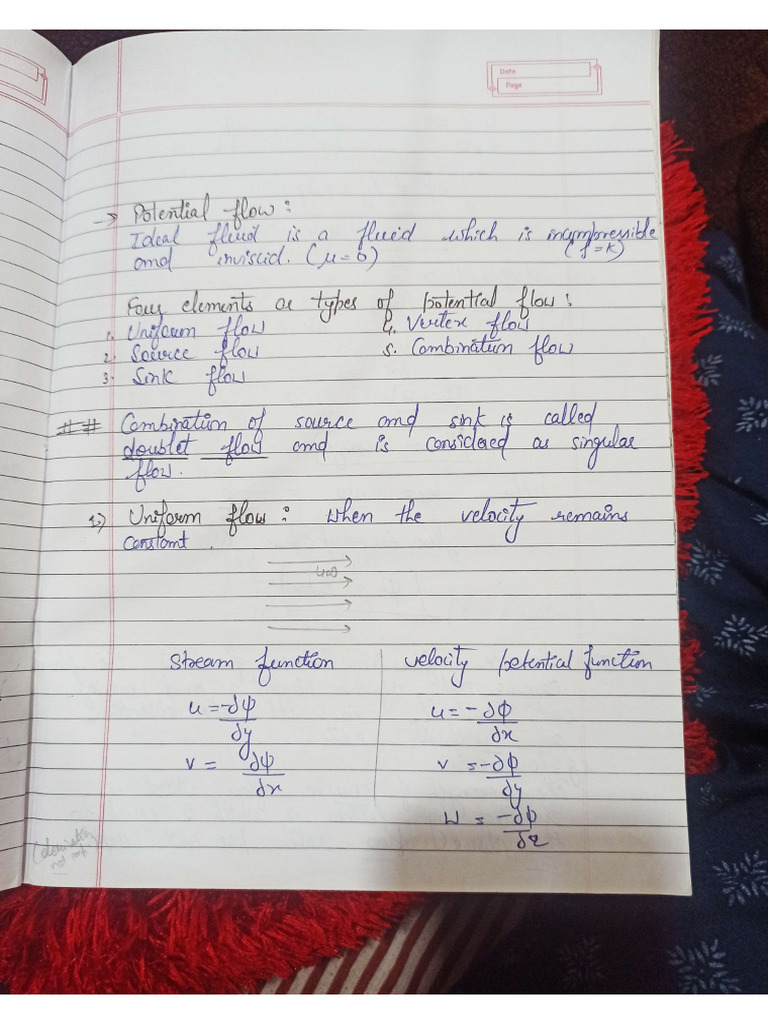 Date
Page
→ Potential flow:
Ideal fluid is a fluid which is incompressible
and inviscid. (μ=0) (ρ=K)
Four elements or types of potential flow:
1. Uniform flow 4. Vortex flow
2. Source flow 5. Combination flow
3. Sink flow
## Combination of source and sink is called
doublet flow and is considered as singular
flow.
1) Uniform flow: when the velocity remains
constant.
u∞
Stream function velocity potential function
u = -∂ψ/∂y u = -∂ϕ/∂x
v = ∂ψ/∂x v = -∂ϕ/∂y
w = -∂ϕ/∂z
not imp